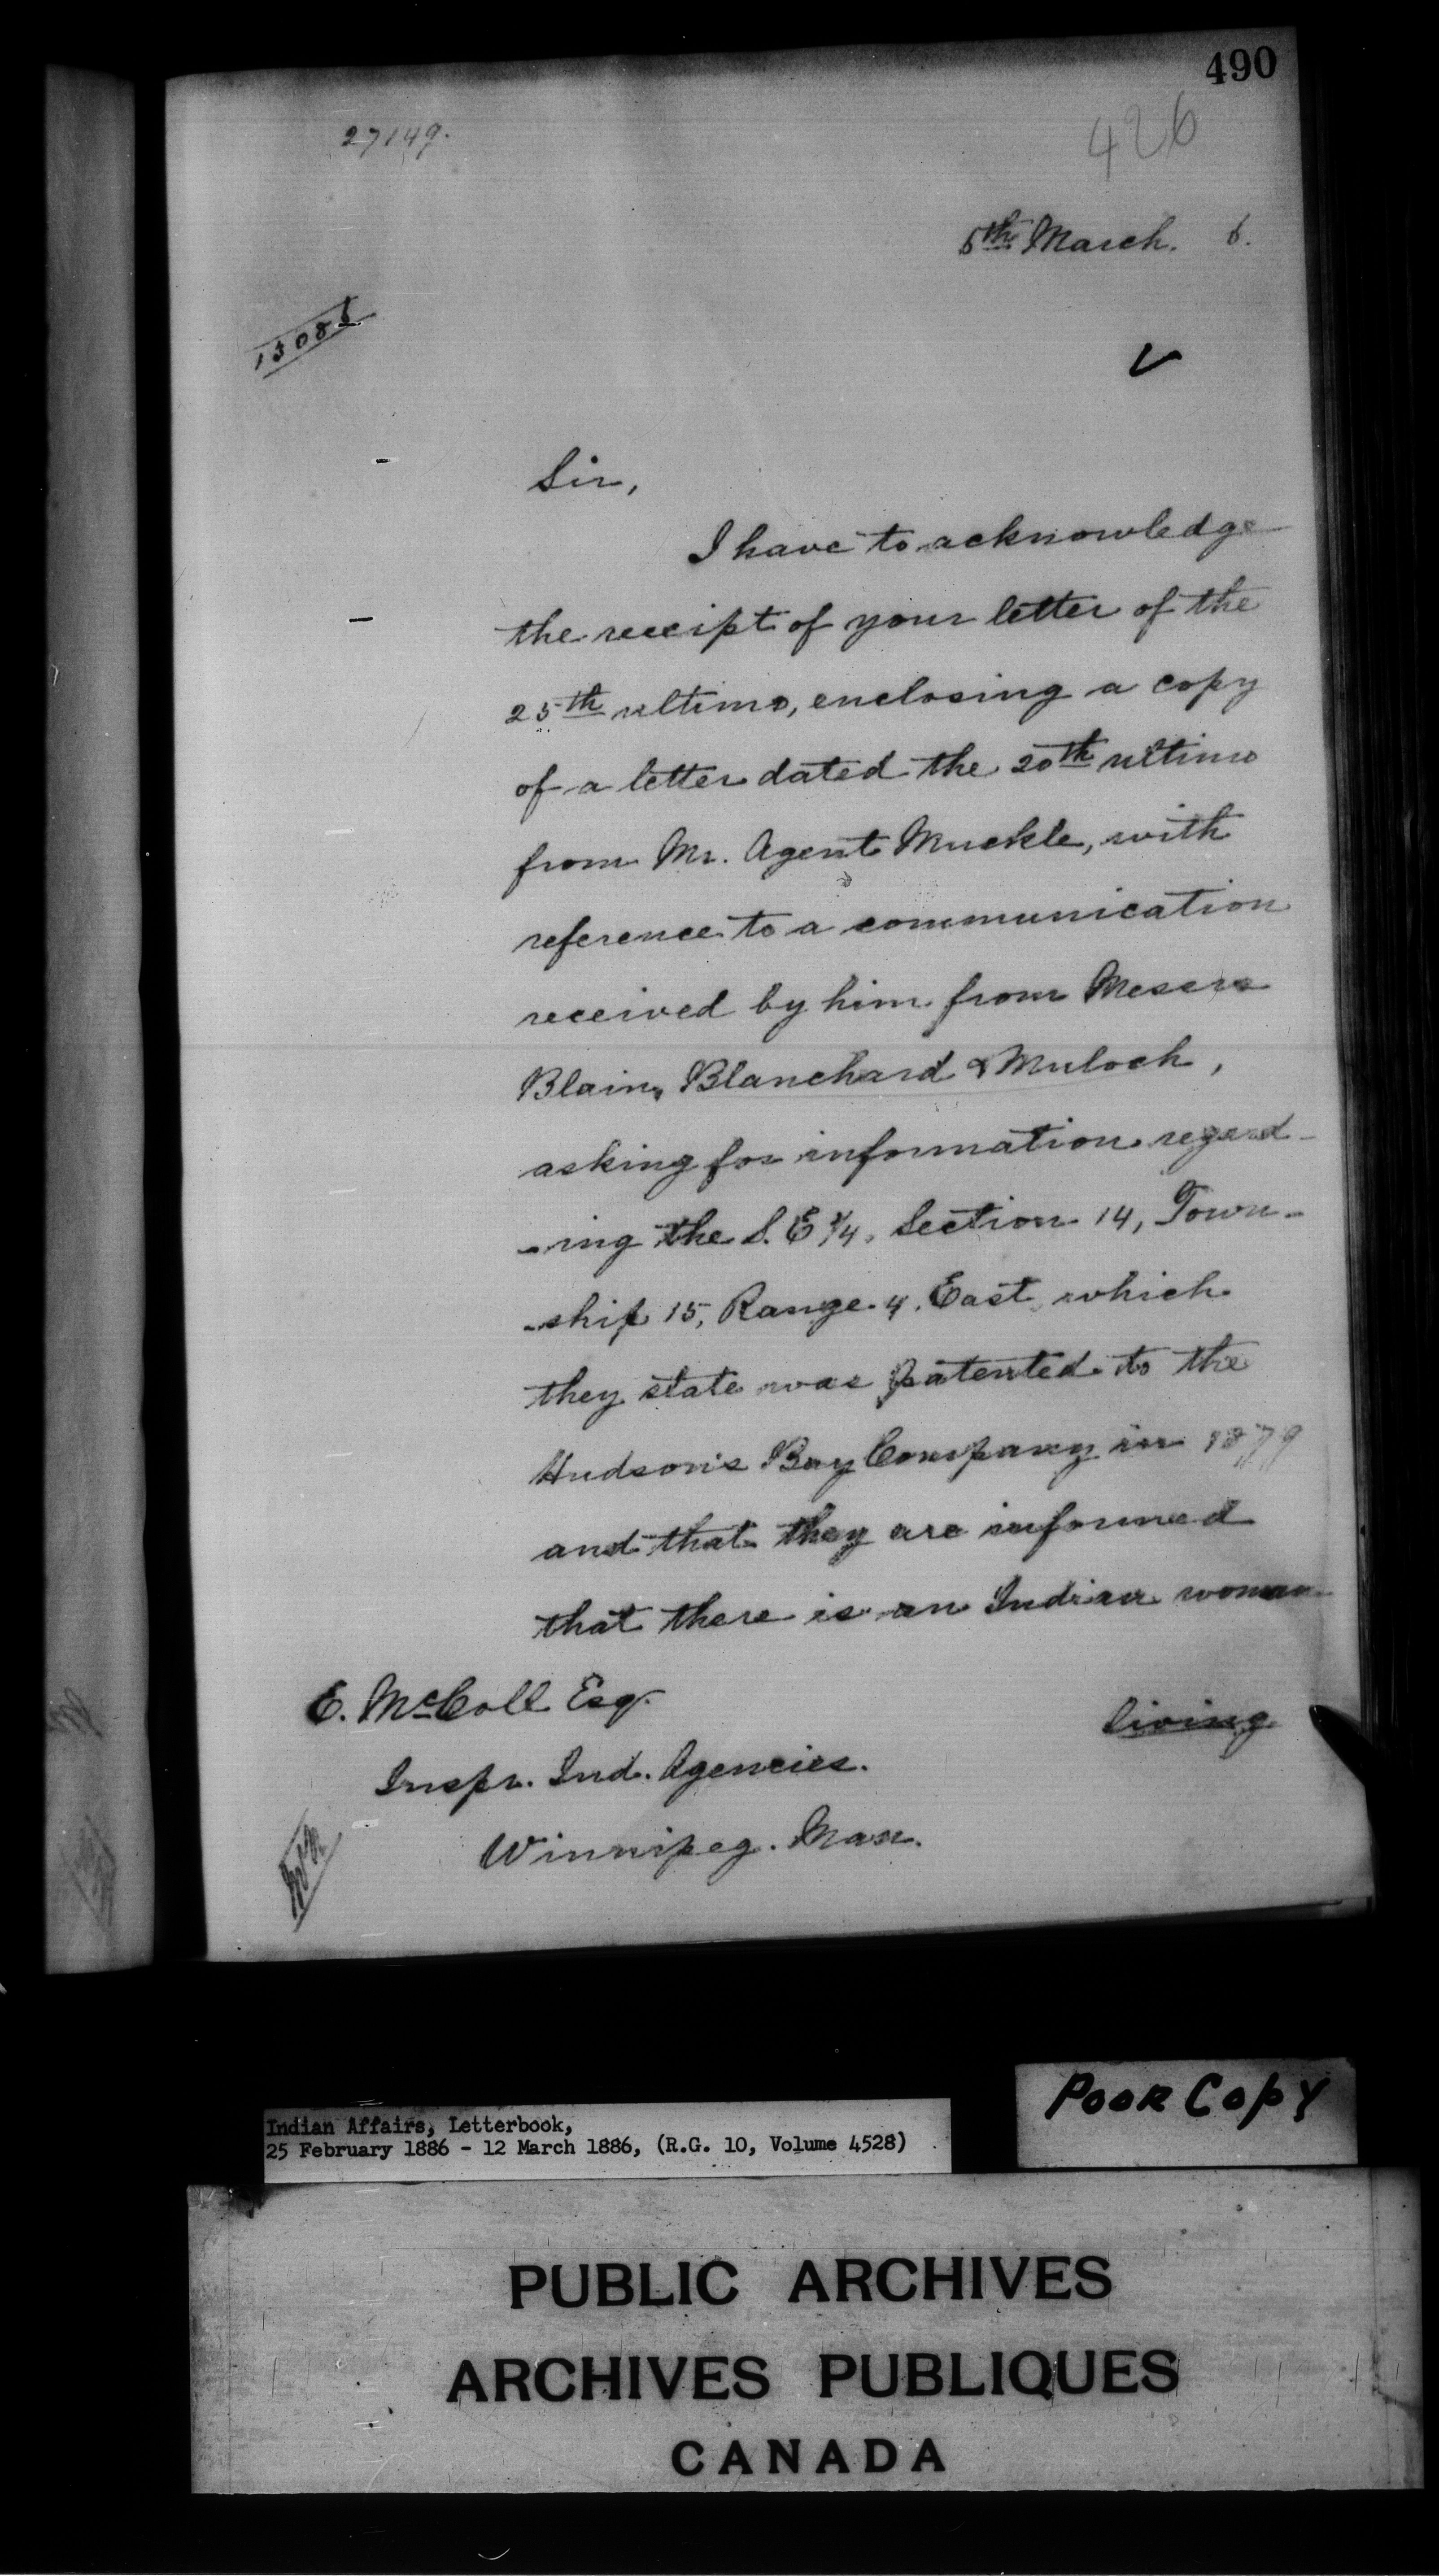 490
426
27149.
5th March. 6.
13086
Sir,
I have to acknowledge
the receipt of your letter of the
25th ultimo, enclosing a copy
of a letter dated the 20th ultimo
from Mr. Agent Muckle, with
reference to a communication
received by him from Messrs
Blain, Blanchard & Muloch,
asking for information regard-
-ing the S. E 1/4, Section 14, Town-
-ship 15, Range 4, East, which
they state was patented to the
Hudson's Bay Company in 1879
and that they are informed
that there is an Indian woman
living
E. McColl Esq.
Inspr. Ind. Agencies.
Winnipeg. Man.
Indian Affairs, Letterbook,
25 February 1886 - 12 March 1886, (R.G. 10, Volume 4528)
POOR COPY
PUBLIC ARCHIVES
ARCHIVES PUBLIQUES
CANADA